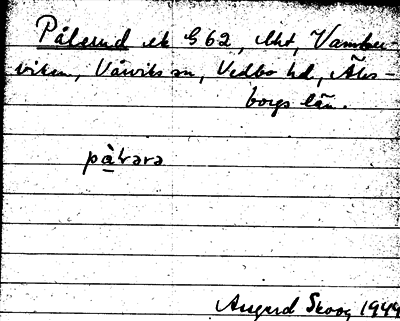 Pålerud ek G62, lht, Vambu-
viken, Vårviks sn, Vedbo hd, Älvs-
borgs län.
Asgerd Skoog 1944